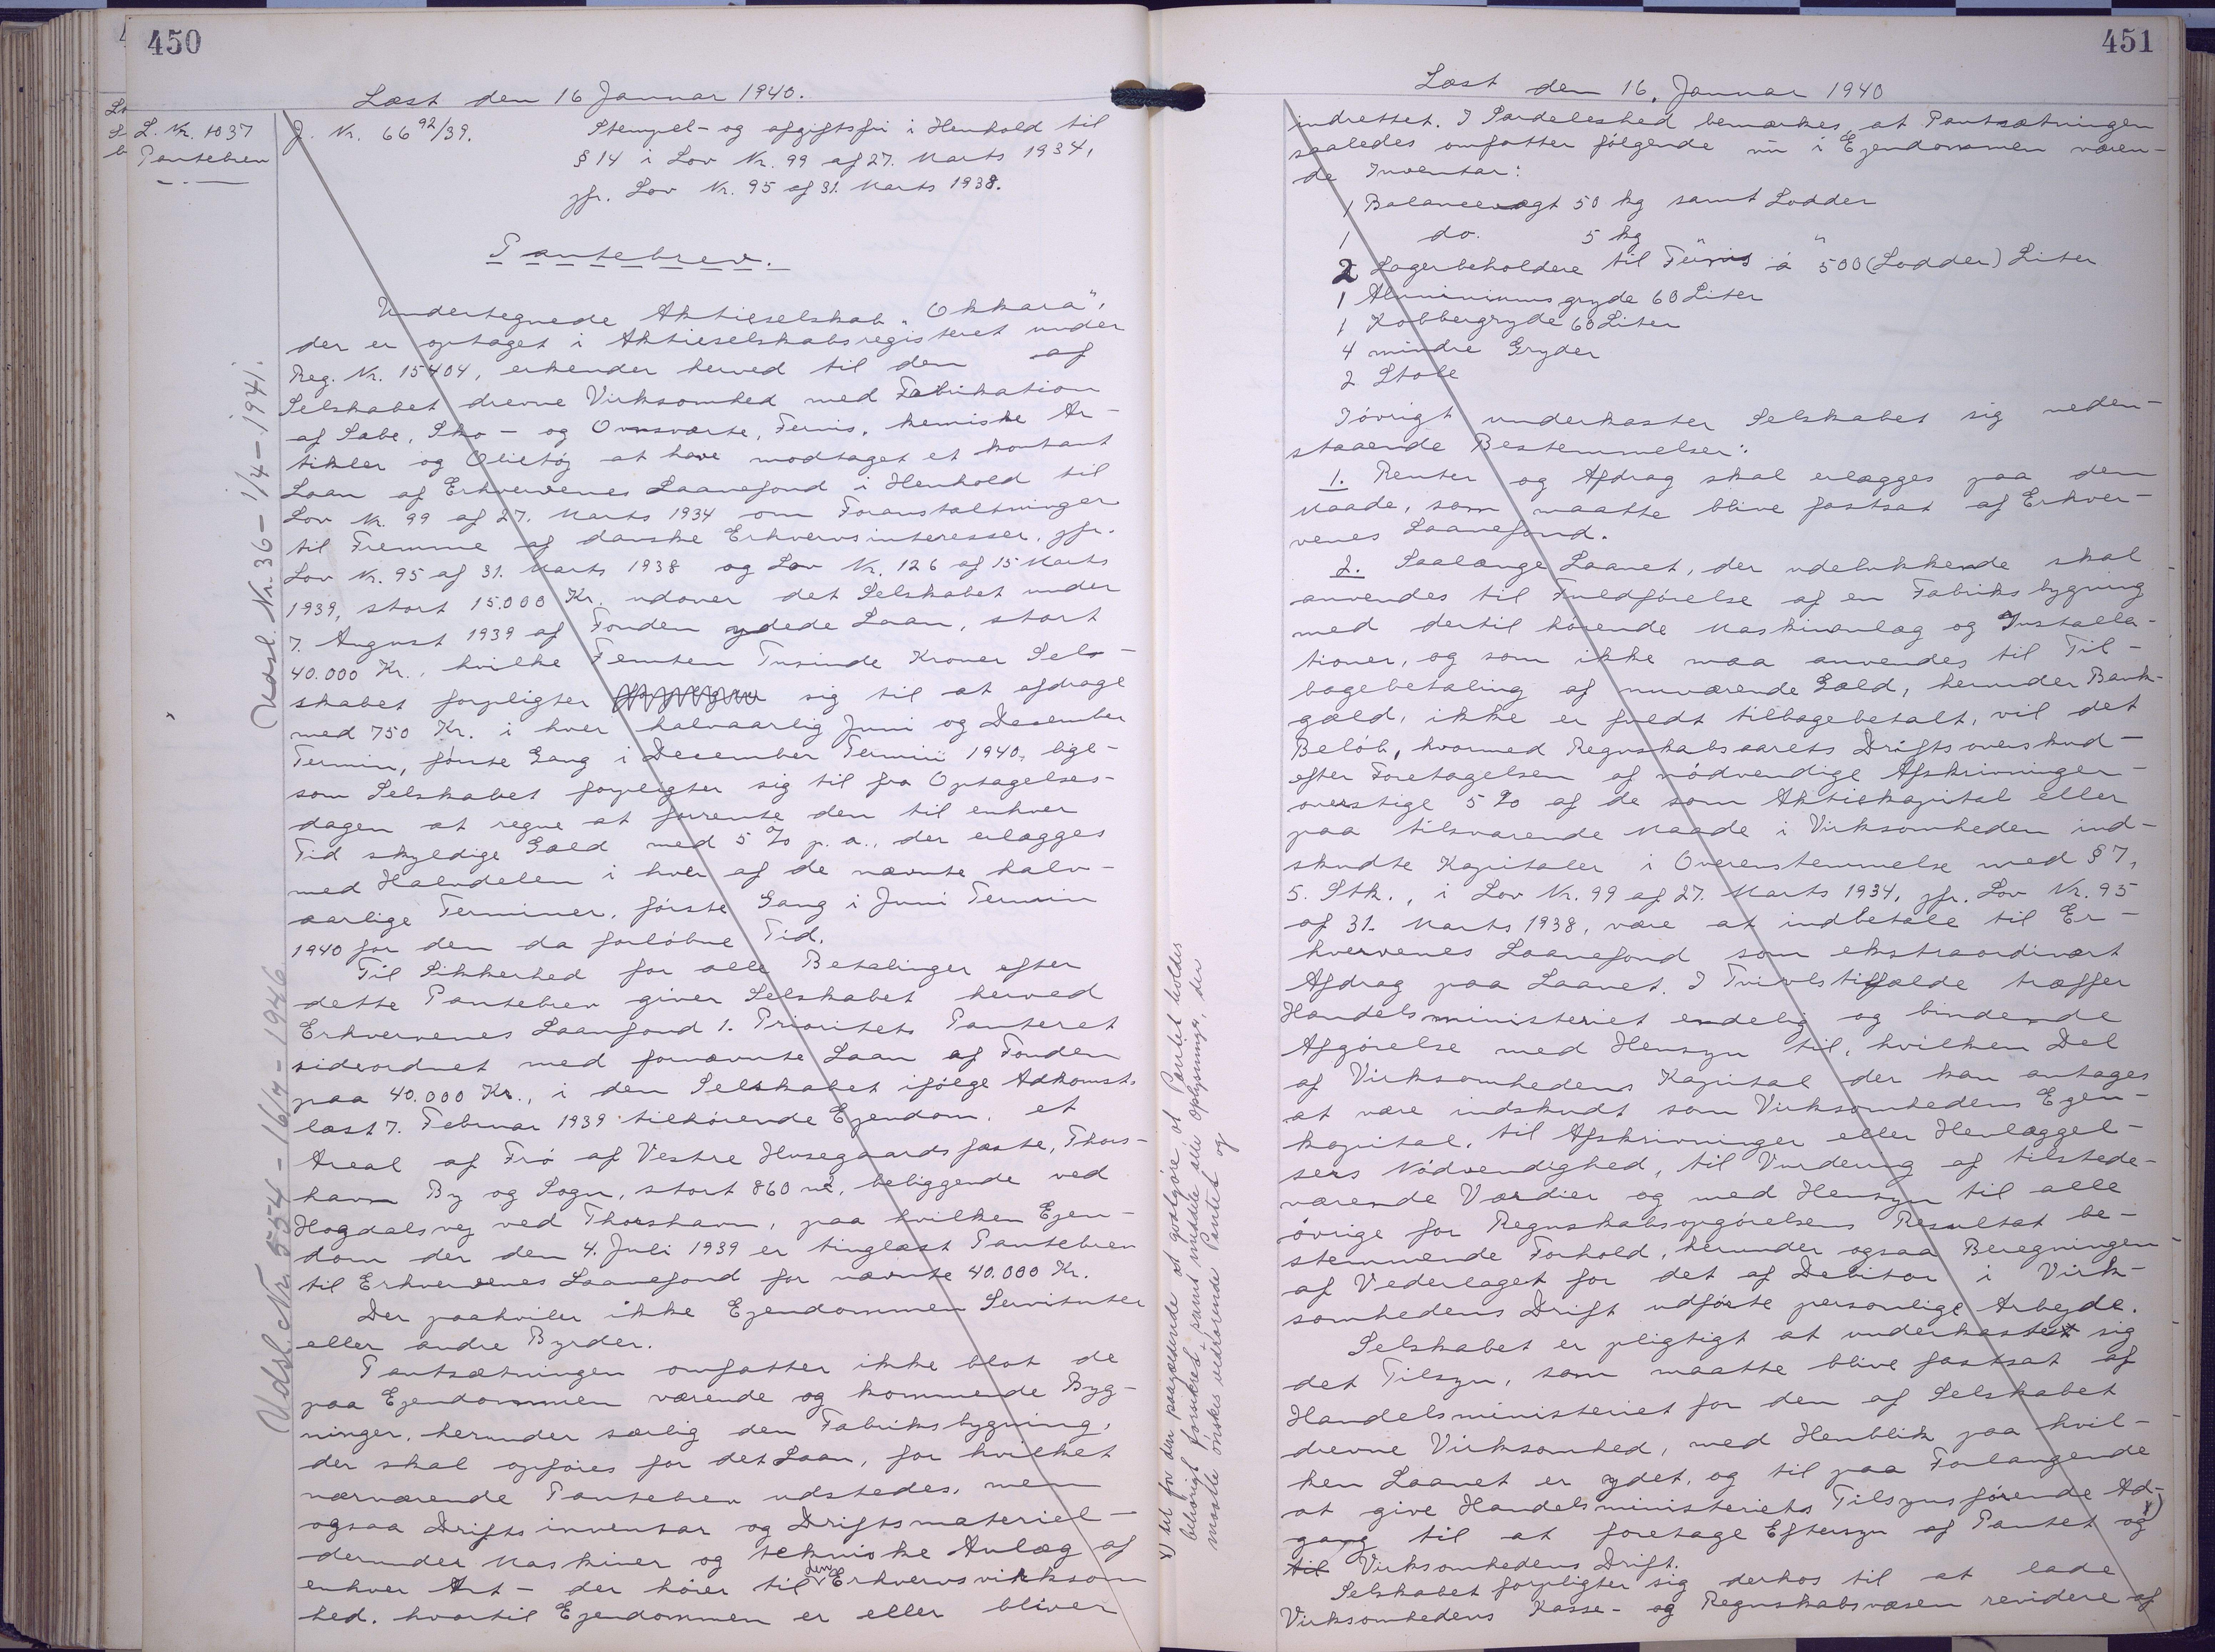 450
Læst den 16 Januar 1940.
L. Nr. 1037
Pantebrev
J. Nr. 66 92/39.
Stempel- og afgiftsfri i Henhold til
§ 14 i Lov Nr. 99 af 27. Marts 1934,
jfr. Lov Nr. 95 af 31. Marts 1938.
Pantebrev.
Undertegnede Aktieselskab "Okkara",
der er optaget i Aktieselskabsregisteret under
Reg. Nr. 15404, erkender herved til den af
Selskabet drevne Virksomhed med Fabrikation
af Sæbe, Sko- og Ovnsværte, Fernis, kemiske Ar-
tikler og Olietøj at have modtaget et kontant
Laan af Erhvervenes Laanefond i Henhold til
Lov Nr. 99 af 27. Marts 1934 om Foranstaltninger
til Fremme af danske Erhvervsinteresser, jfr.
Lov Nr. 95 af 31. Marts 1938 og Lov Nr. 126 af 15 Marts
1939, stort 15.000 Kr. udover det Selskabet under
7. August 1939 af Fonden ydede Laan, stort
40.000 Kr., hvilke Femten Tusinde Kroner Sel-
skabet forpligter sig til at afdrage
med 750 Kr. i hver halvaarlig Juni og December
Termin, første Gang i December Termin 1940, lige-
som Selskabet forpligter sig til fra Optagelses-
dagen at regne at forrente den til enhver
Tid skyldige Gæld med 5 % p. a., der erlægges
med Halvdelen i hver af de nævnte halv-
aarlige Terminer, første Gang i Juni Termin
1940 for den da forløbne Tid.
Til Sikkerhed for alle Betalinger efter
dette Pantebrev giver Selskabet herved
Erhvervenes Laanfond 1. Prioritets Panteret
sideordnet med fornævnte Laan af Fonden
paa 40.000 Kr., i den Selskabet ifølge Adkomst
læst 7. Februar 1939 tilhørende Ejendom, et
Areal af Frø af Vestre Husegaards fæste, Thors-
havn By og Sogn, stort 860 m², beliggende ved
Hogdalsvej ved Thorshavn, paa hvilken Ejen-
dom der den 4. Juli 1939 er tinglæst Pantebrev
til Erhvervenes Laanefond for nævnte 40.000 Kr.
Der paahviler ikke Ejendommen Servituter
eller andre Byrder.
Pantsætningen omfatter ikke blot de
paa Ejendommen værende og kommende Byg-
ninger, herunder særlig den Fabriksbygning,
der skal opføres for det Laan, for hvilket
nærværende Pantebrev udstedes, men
ogsaa Driftsinventar og Driftsmateriel -
derunder Maskiner og tekniske Anlæg af
enhver Art - der hører til den Erhvervsvirksom
hed, hvortil Ejendommen er eller bliver
Udsl. Nr. 36 - 1/4 - 1941.
Udsl. Nr. 554 - 16/7 - 1946
451
Læst den 16. Januar 1940
indrettet. I Særdeleshed bemærkes, at Pantsætningen
saaledes omfatter følgende nu i Ejendommen væren-
de Inventar:
1 Balancevægt 50 kg samt Lodder
1 do. 5 kg " "
2 Lagerbeholdere til Fernis á 500 (Lodder) Liter
1 Aluminiumsgryde 60 Liter
1 Kobbergryde 60 Liter
4 mindre Gryder
2 Støbe
Iøvrigt underkaster Selskabet sig neden-
staaende Bestemmelser:
1. Renter og Afdrag skal erlægges paa den
Maade, som maatte blive fastsat af Erhver-
venes Laanefond.
2. Saalænge Laanet, der udelukkende skal
anvendes til Fuldførelse af en Fabriksbygning
med dertil hørende Maskinanlæg og Installa-
tioner, og som ikke maa anvendes til Til-
bagebetaling af nuværende Gæld, herunder Bank-
gæld, ikke er fuldt tilbagebetalt, vil det
Beløb, hvormed Regnskabsaarets Driftsoverskud -
efter Foretagelsen af nødvendige Afskrivninger -
overstige 5 % af de som Aktiekapital eller
paa tilsvarende Maade i Virksomheden ind-
skudte Kapitaler i Overenstemmelse med § 7,
5. Stk., i Lov Nr. 99 af 27. Marts 1934, jfr. Lov Nr. 95
af 31. Marts 1938, være at indbetale til Er-
hvervenes Laanefond som ekstraordinært
Afdrag paa Laanet. I Tvivlstilfælde træffer
Handelsministeriet endelig og bindende
Afgørelse med Hensyn til, hvilken Del
af Virksomhedens Kapital der kan antages
at være indskudt som Virksomhedens Egen-
kapital, til Afskrivninger eller Henlæggel-
sers Nødvendighed, til Vurdering af tilstede-
værende Værdier og med Hensyn til alle
øvrige for Regnskabsopgørelsens Resultat be-
stemmende Forhold, herunder ogsaa Beregningen
af Vederlaget for det af Debitor i Virk-
somhedens Drift udførte personlige Arbejde.
Selskabet er pligtigt at underkaste sig
det Tilsyn, som maatte blive fastsat af
Handelsministeriet for den af Selskabet
drevne Virksomhed, med Henblik paa hvil-
ken Laanet er ydet, og til paa Forlangende
at give Handelsministeriets Tilsynsførende Ad-
gang til at foretage Eftersyn af Pantet og x)
til Virksomhedens Drift.
Selskabet forpligter sig derhos til at lade
Virksomhedens Kasse- og Regnskabsvæsen revidere af
x) til for den paagældende at godtgøre, at Pantet holdes
behørigt forsikret, samt meddele alle Oplysninger, der
maatte ønskes vedrørende Pantet og